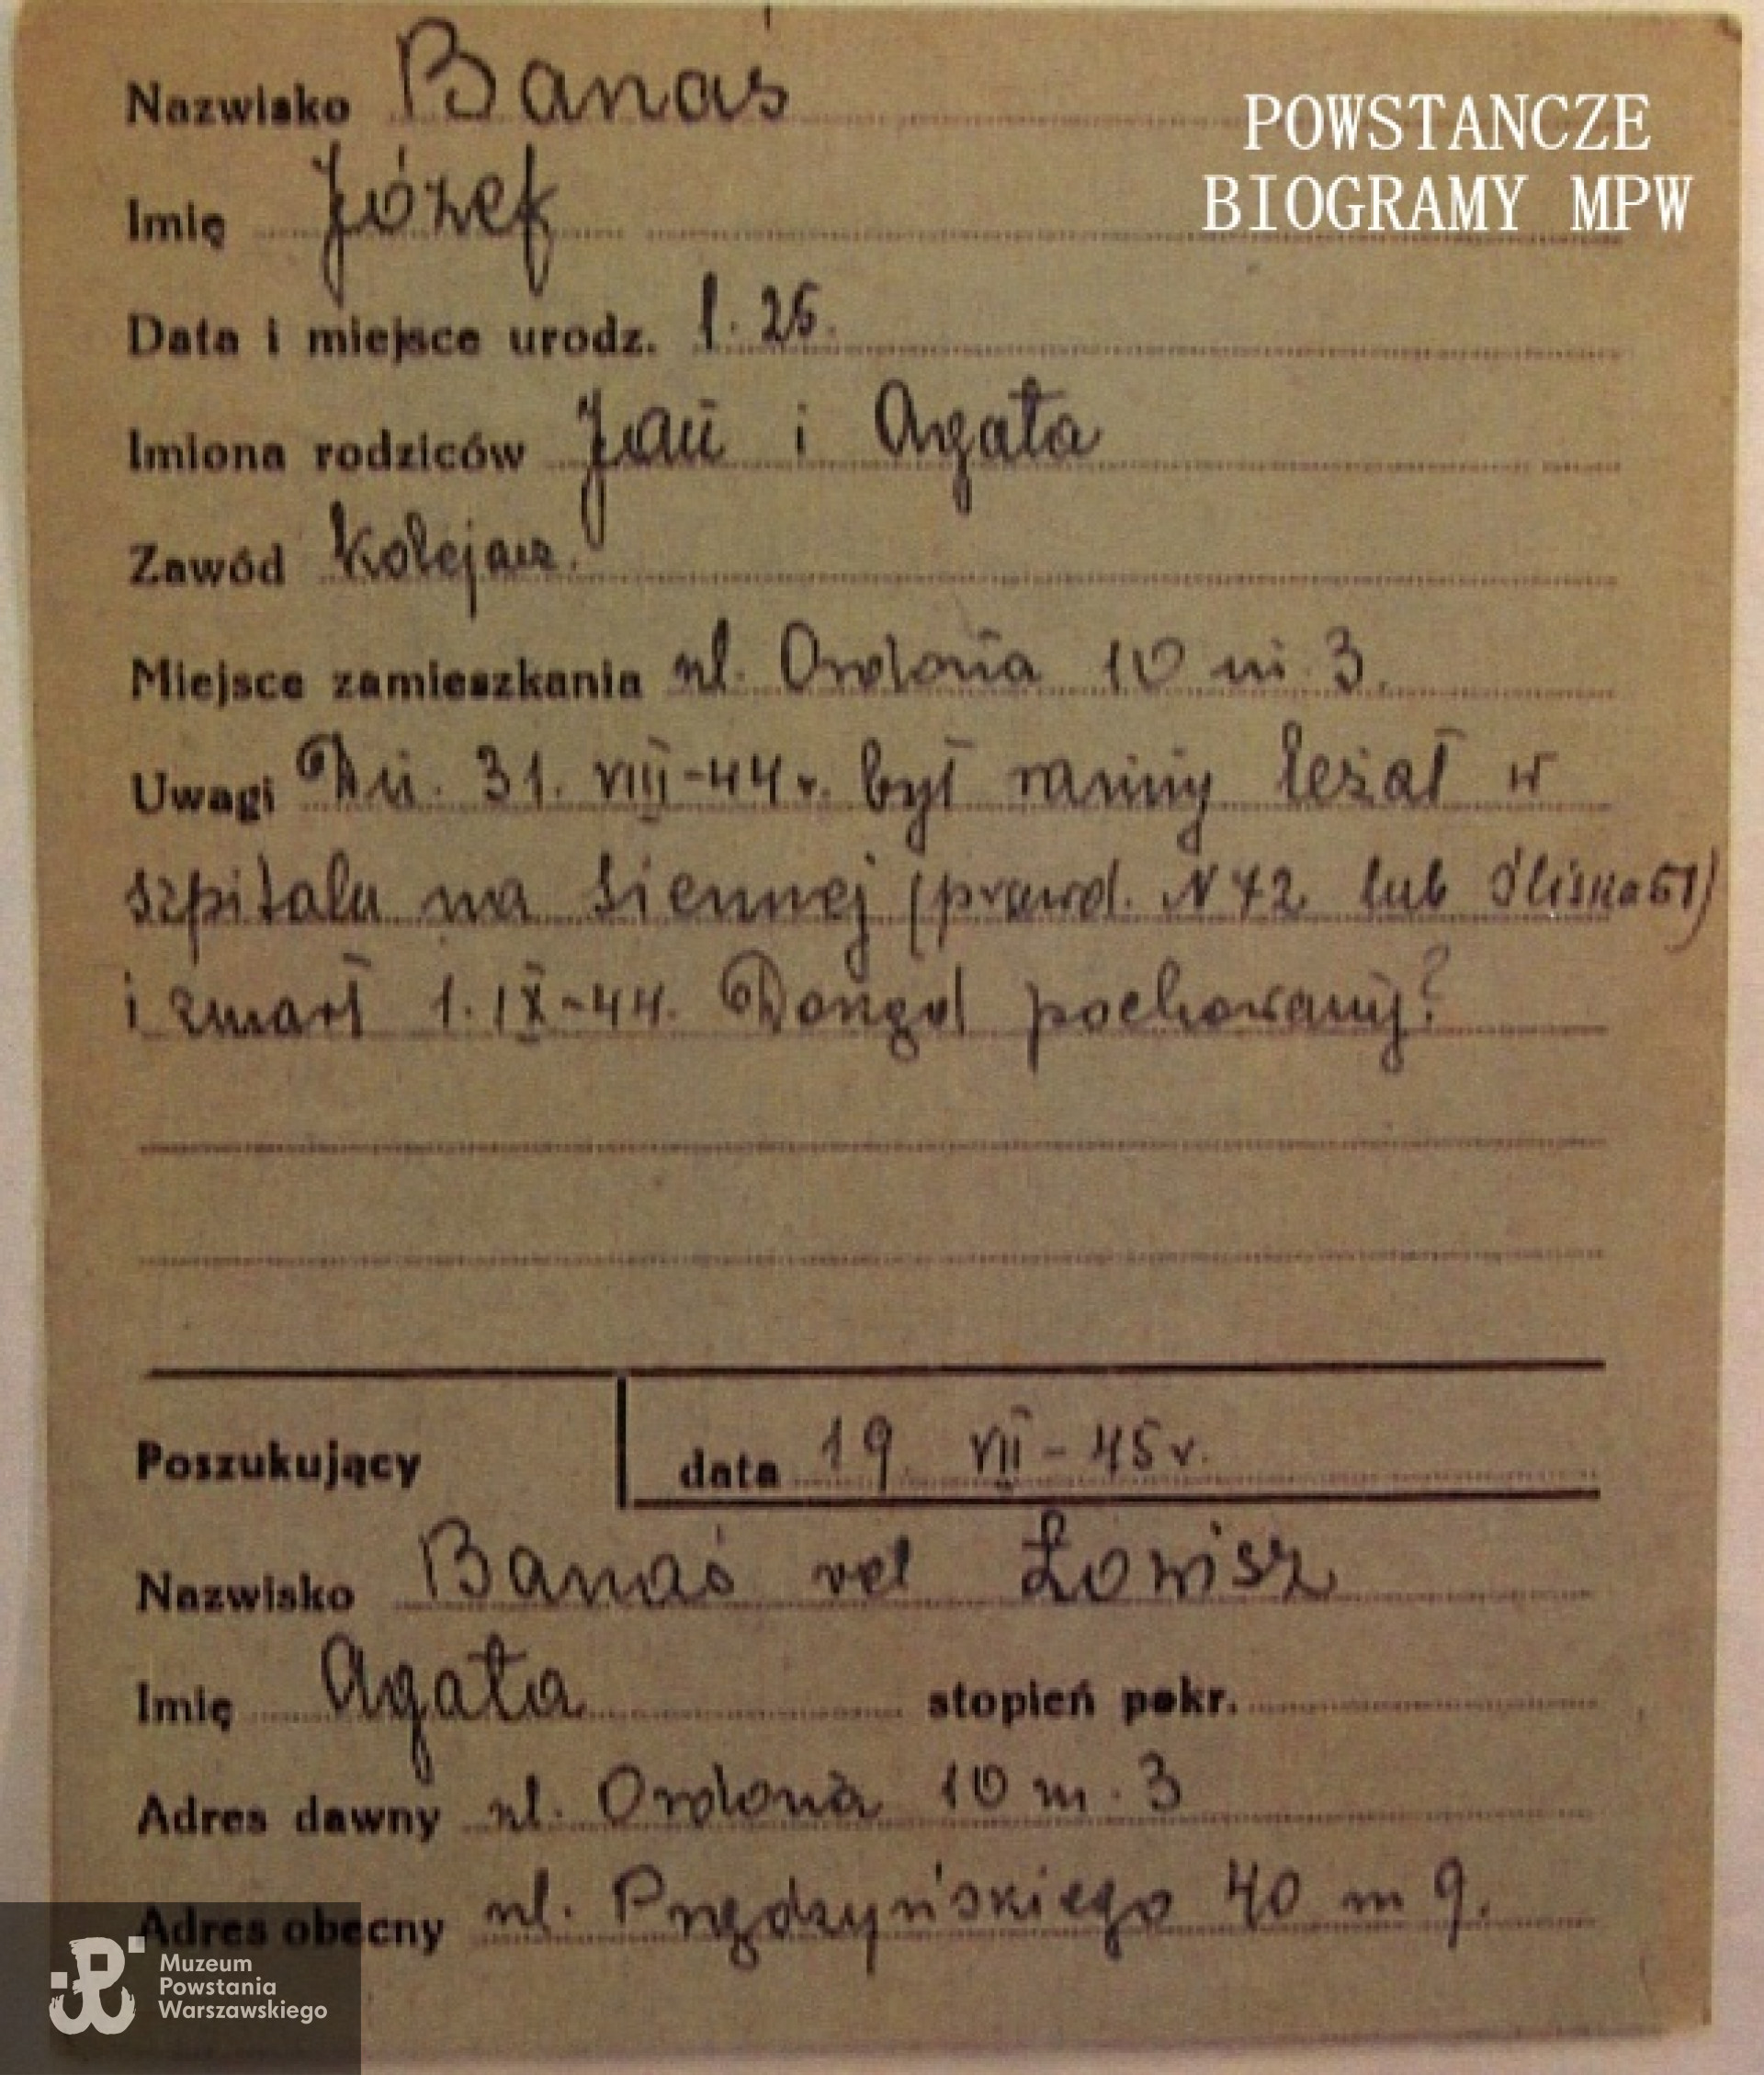 Nazwisko Banaś
POWSTANCZE
BIOGRAMY MPW
Imię Józef
Data i miejsce urodz. l. 26.
Imiona rodziców Jan i Agata
Zawód Kolejarz.
Miejsce zamieszkania ul. Ordona 10 m. 3.
Uwagi Dn. 31. VIII-44 r. był ranny leżał w
szpitalu na Siennej (prawd. N 72 lub Śliska 51)
i zmarł 1. IX-44. Dokąd pochowany?
Poszukujący data 19 VII - 45 r.
Nazwisko Banaś vel Łowisz
Imię Agata stopień pokr.
Adres dawny ul. Ordona 10 m. 3
Adres obecny ul. Prądzyńskiego 40 m 9.
Muzeum
Powstania
Warszawskiego